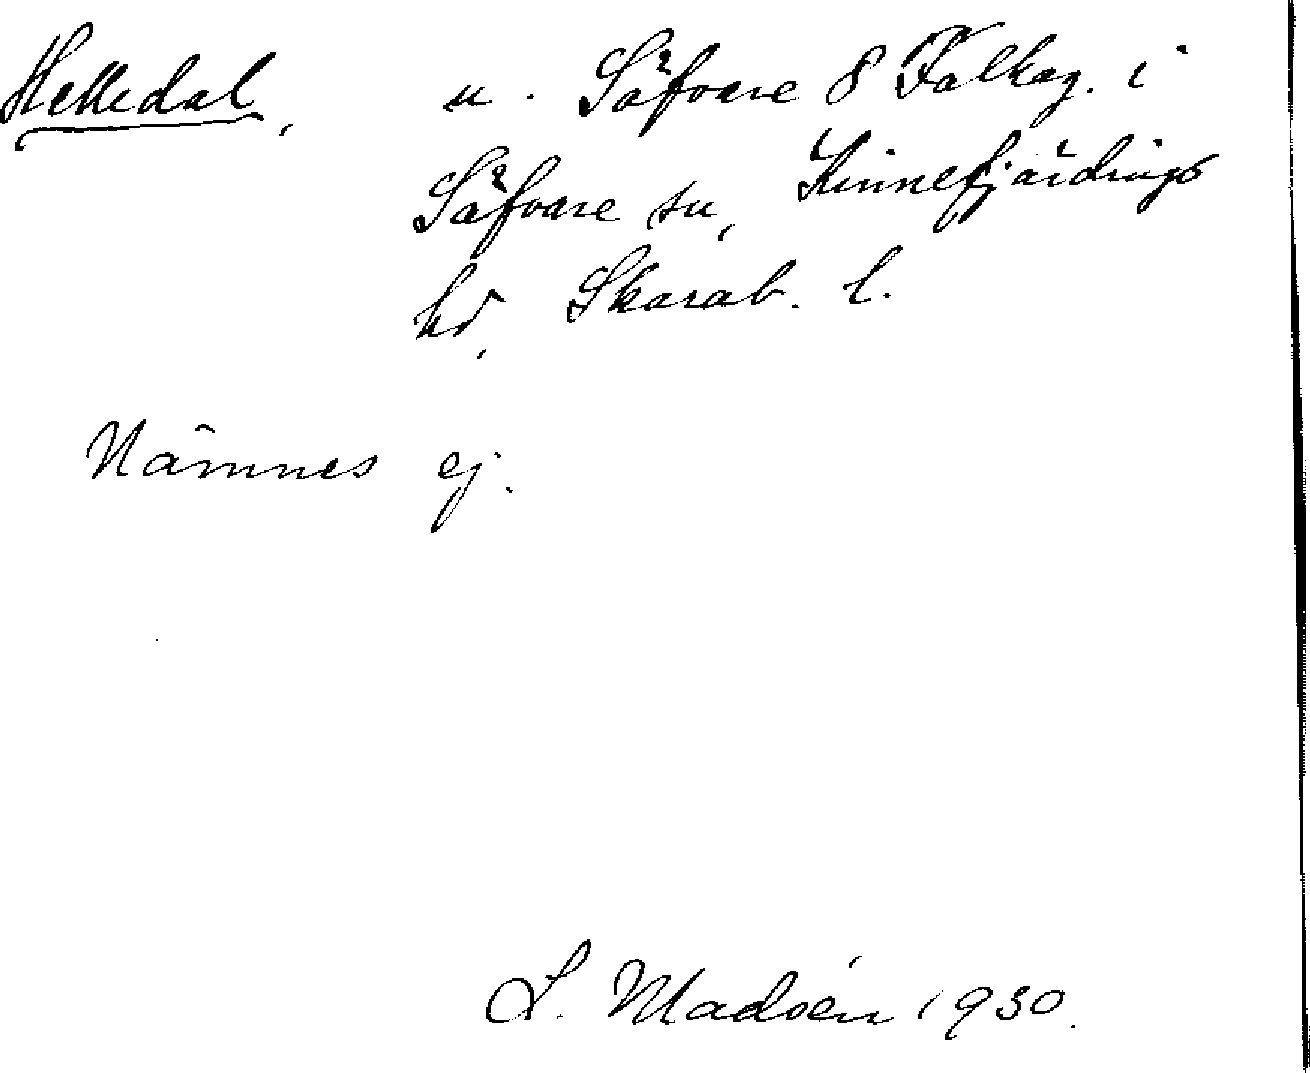 Helledal, u. Säfvare 8 Falkag. i
Säfvare sn, Kinnefjärdings
hd, Skarab. l.
Nämnes ej.
L. Madsén 1930.